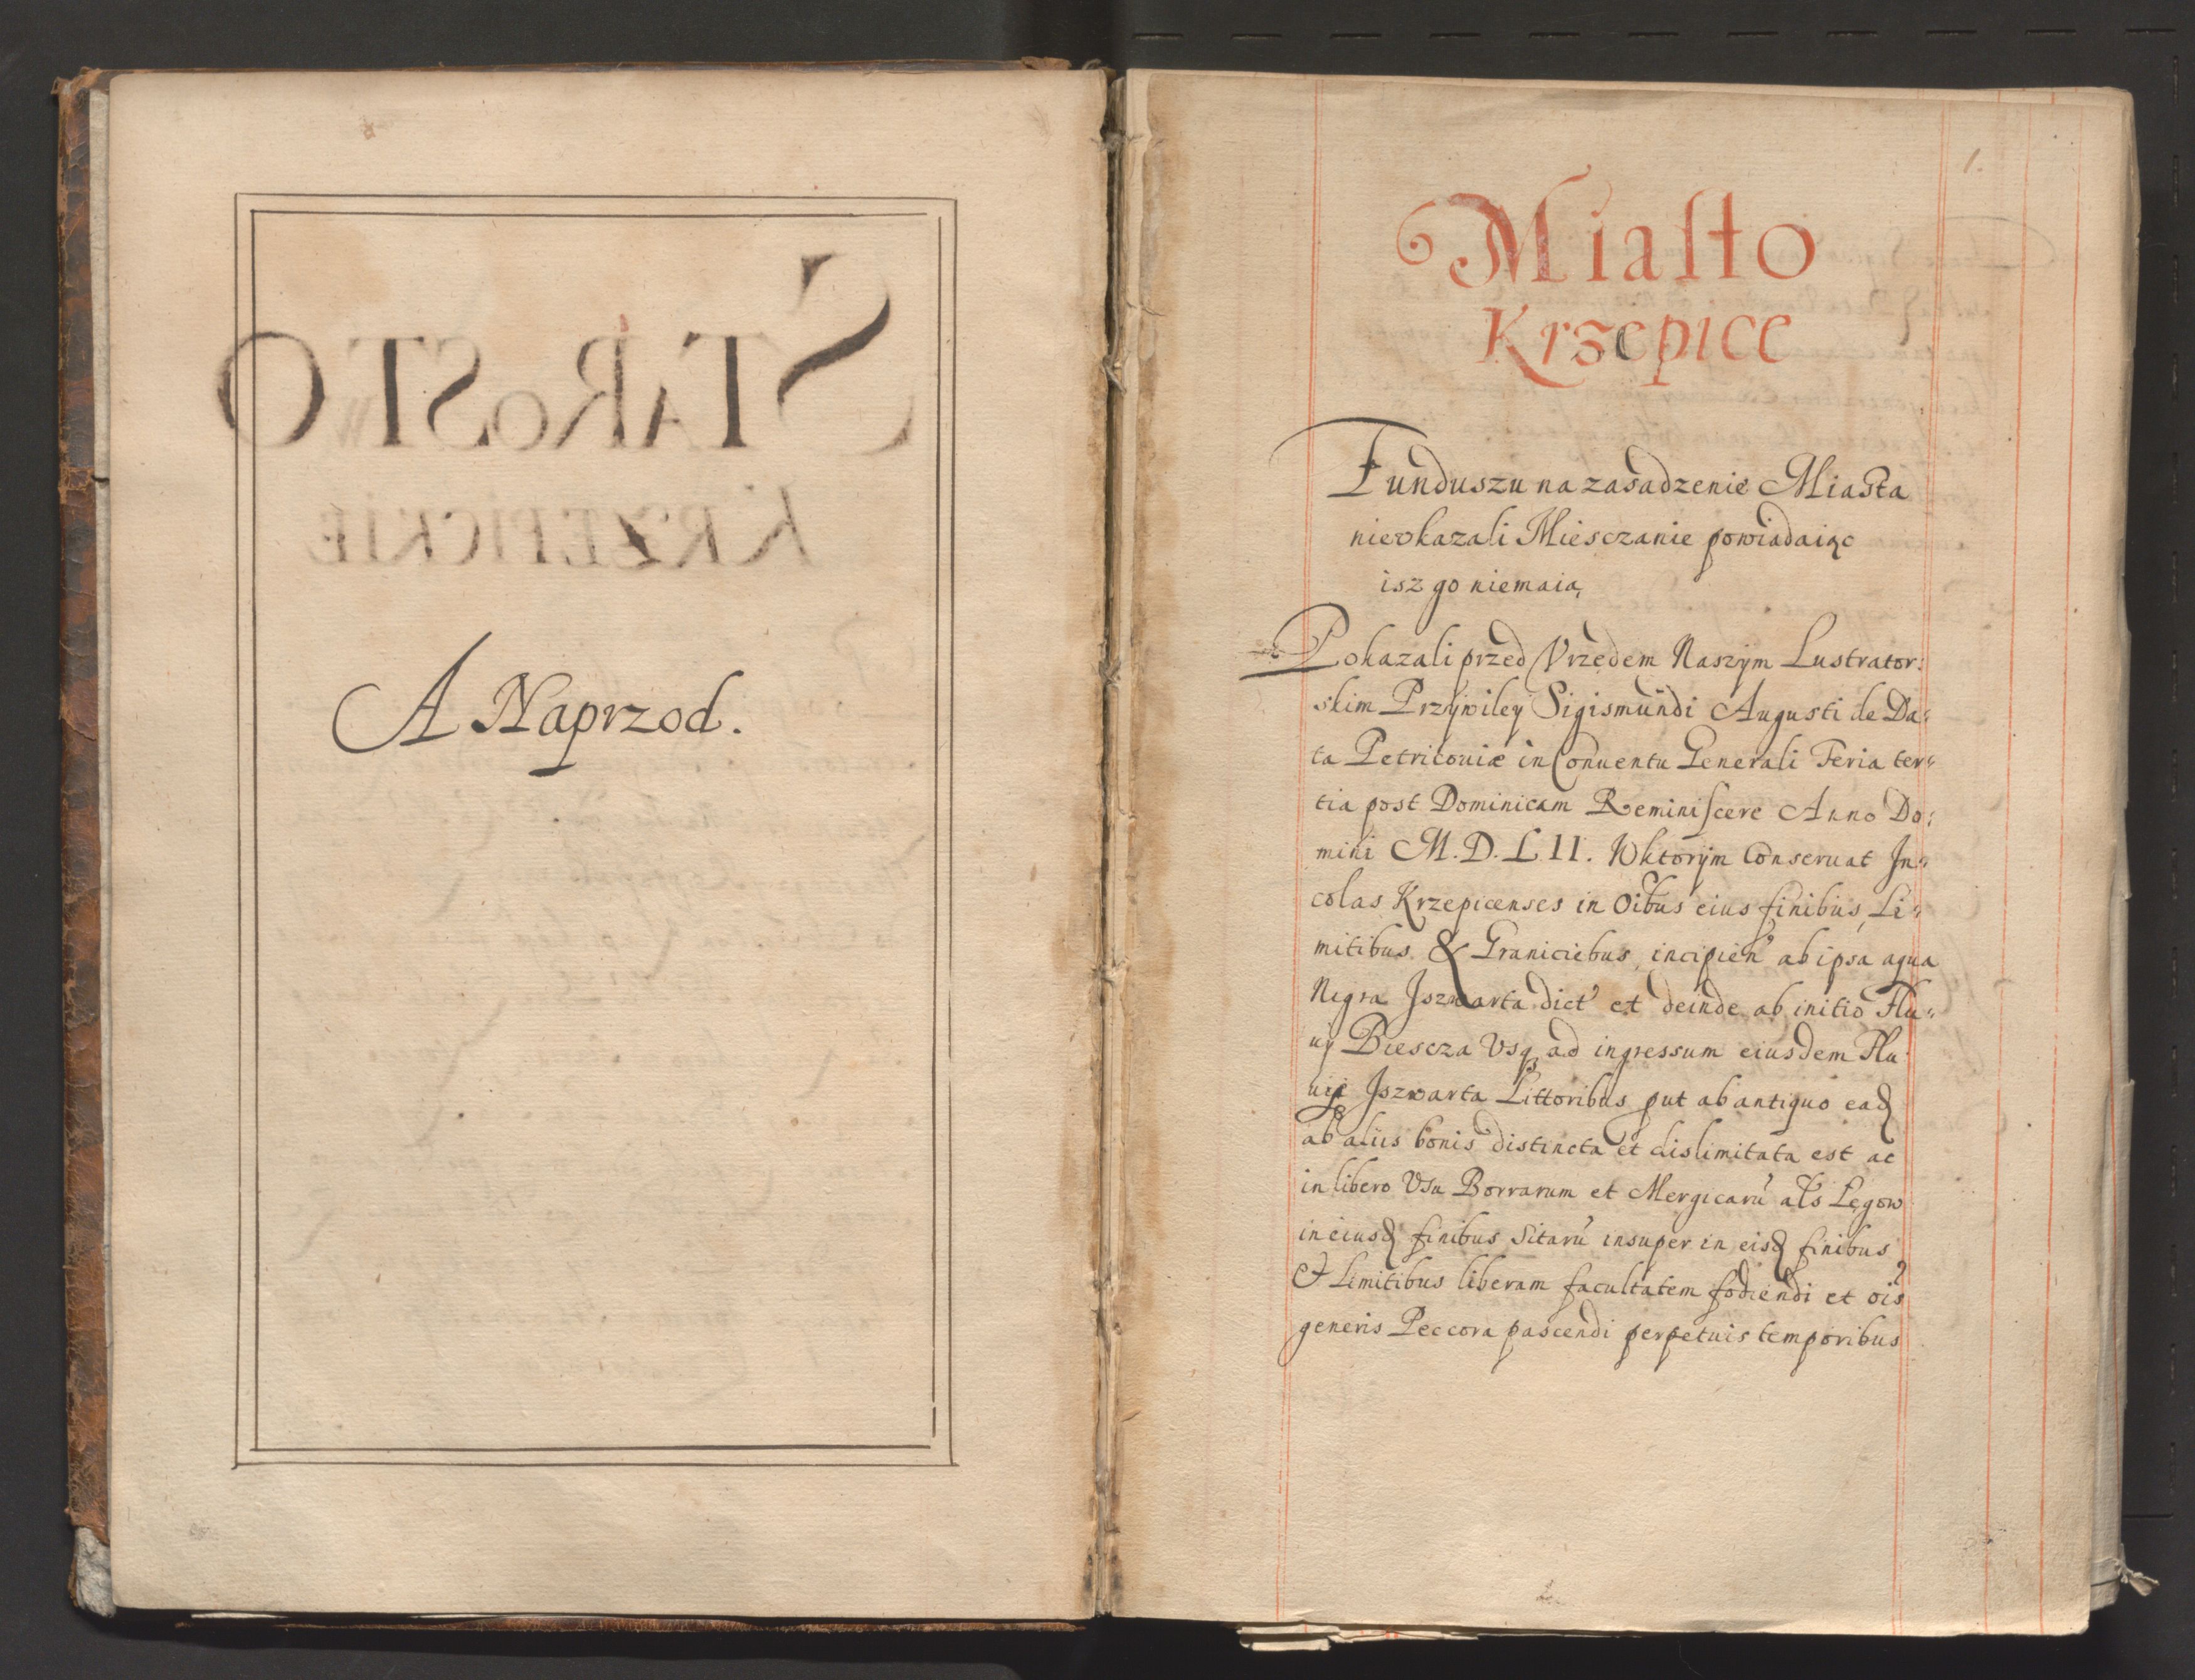 A Naprzod.
1.
Miasto
Krzepice
Funduszu na zasadzenie Miasta
nievkazali Miesczanie powiadaiąc
isz go niemaią,
Pokazali przed Vrzędem Naszym Lustrator:
skim Przywiley Sigismundi Augusti de Da:
ta Petricouiæ in Conuentu Generali Feria ter:
tia post Dominicam Reminiscere Anno Do:
mini M.D.LII. Wktorym Conseruat In:
colas Krzepicenses in Oibus eius finibus, Li:
mitibus & Graniciebus, incipien ab ipsa aqua
Nigra Iszwarta dict et deinde ab initio Flu:
uij Biescza Vsq ad ingressum eiusdem Flu
uij Iszwarta Littoribus put ab antiquo ead
ab alijs bonis distincta et dislimitata est ac
in libero Vsu Borrarum et Mergicarū als Łęgow
in eiusd finibus Sitarū insuper in eisd finibus
& Limitibus liberam facultatem fodiendi et ois
generis Peccora pascendi perpetuis temporibus